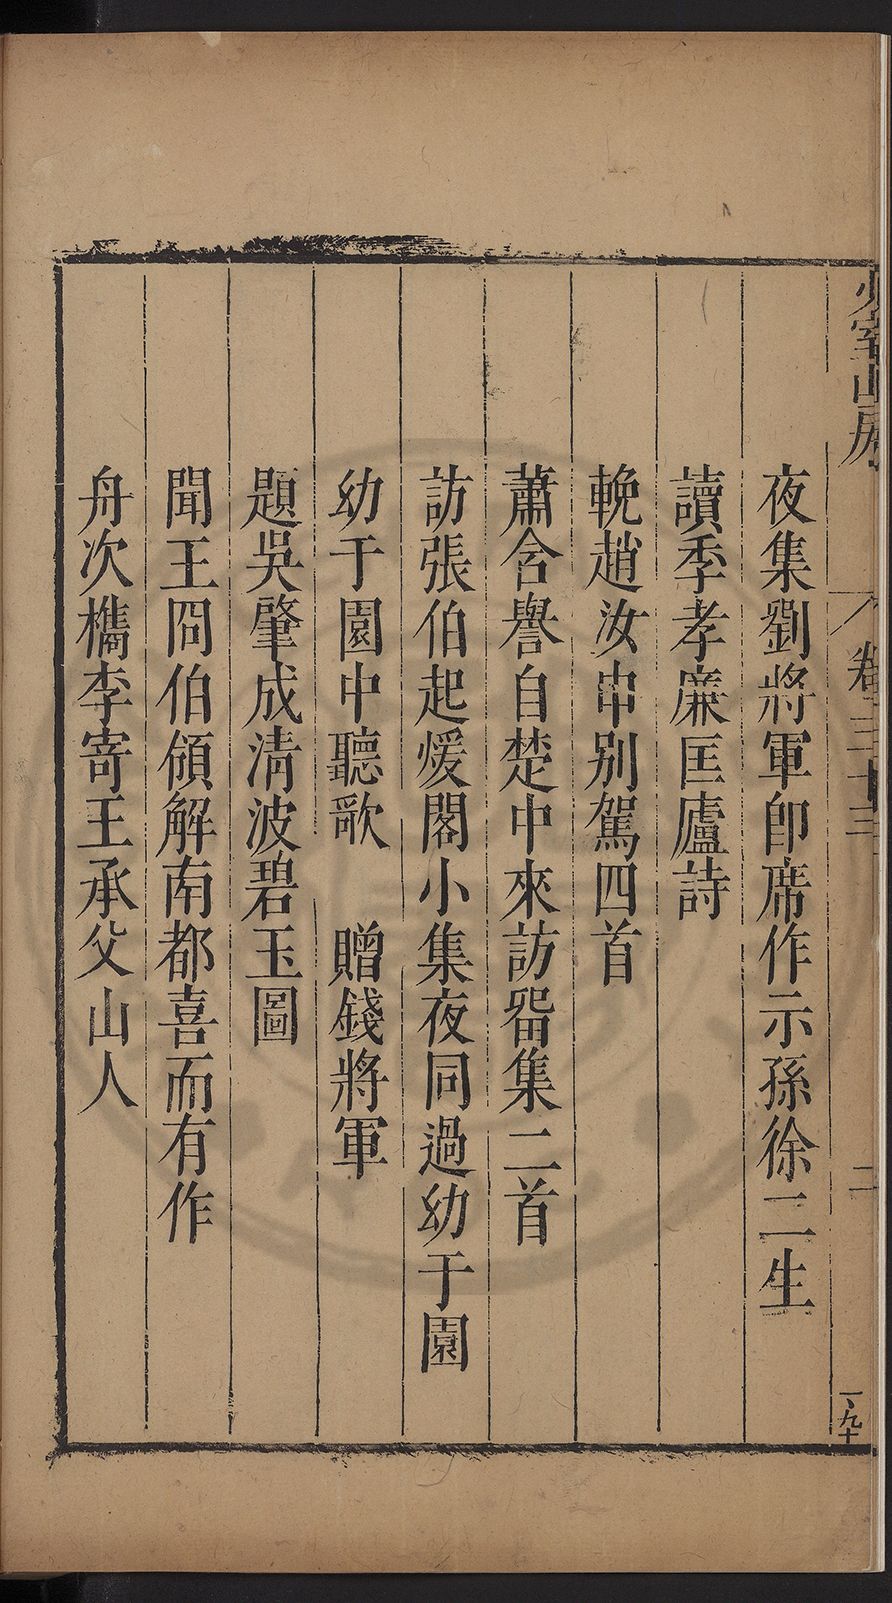 少室山房
卷三十三
二
夜集劉將軍卽席作示孫徐二生
讀季孝廉匡廬詩
輓趙汝申別駕四首
蕭含譽自楚中來訪畱集二首
訪張伯起煖閣小集夜同過幼于園
幼于園中聽歌　贈錢將軍
題吳肇成淸波碧玉圖
聞王冏伯領解南都喜而有作
舟次檇李寄王承父山人